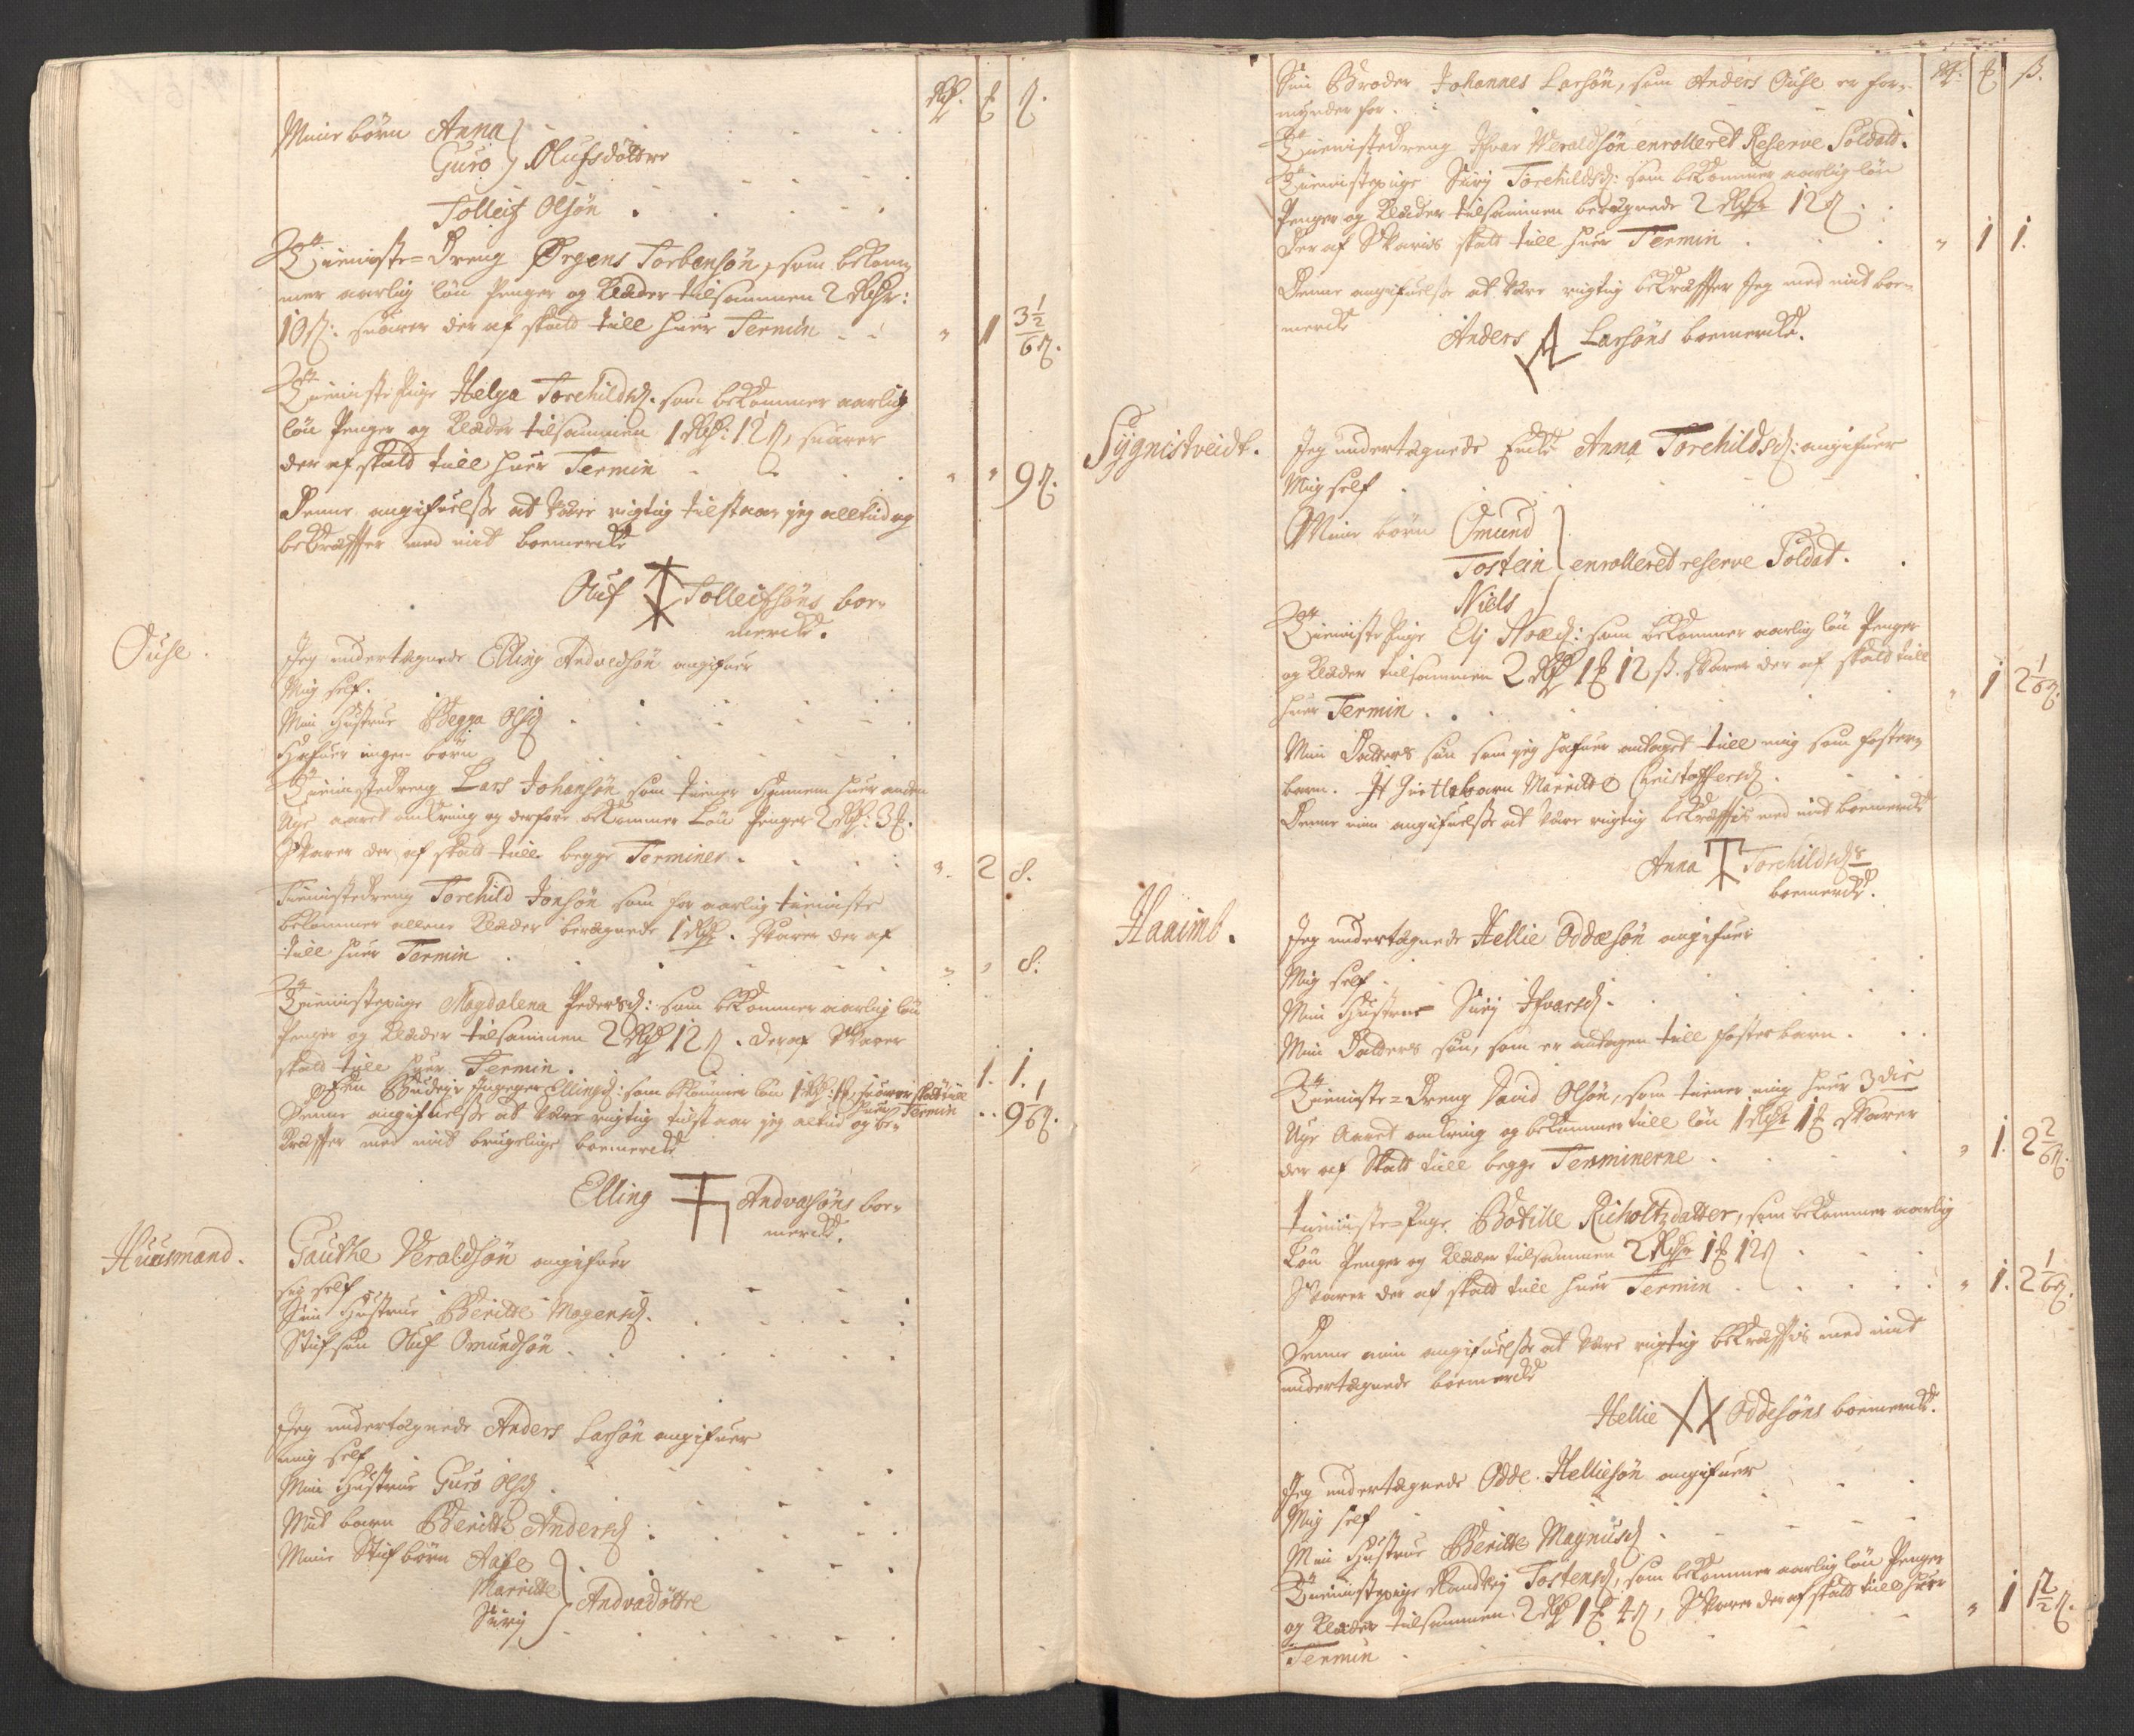 Rdr. ℔ ß.
Mine børn Anna
Guro } Olufsdøttre
Tolleif Olsøn
Tieniste-Dreng Ørgens Torbensøn, som bekom-
mer aarlig løn Penger og Klæder tilsammen 2 Rdr:
10 ß: suarer der af skatt till huer Termin " 1 3 1/2 /6 ß.
Tieniste Pige Helga Torchildsd. som bekommer aarlig
løn Penger og Klæder tilsammen 1 Rdr: 12 ß, suarer
der af skatt till huer Termin " " 9 ß.
Denne angifuelse at være rigtig tilstaar jeg alletid og
bekræffter med mit boemercke
Oluf Tolleifsøns boe-
mercke.
Ouse.
Jeg undertegnede Elling Andvedsøn angifuer
Mig self.
Min Hustrue Begga Olsd
Hafuer ingen børn
Tienistedreng Lars Johansøn som tiener Hannem huer anden
Uge aaret omkring og derfore bekommer Løn Penger 2 Rdr: 3 ℔.
Svarer der af skatt till begge Terminer " 2 8.
Tienistedreng Torchild Jonsøn som for aarlig tieniste
bekommer allene Klæder beregnede 1 Rdr. Svarer der af
till huer Termin " " 8.
Tienistepige Magdalena Pedersd: som bekommer aarlig løn
Penger og Klæder tilsammen 2 Rdr 12 ß. Deraf Svarer
skatt till huer Termin. 1. 1.
Een Budeye Ingeger Ellingsd: som bekommer løn 1 Rdr: 1 ℔, suarer skatt till
huer Termin " " 9 1/6 ß.
Denne angifuelse at være rigtig tilstaar jeg altid og be-
kræffter med mit brugelige boemercke
Elling Andvasøns boe-
mercke.
Huusmand.
Gauthe Veraldsøn angifuer
sig self
Sin Hustrue Beritte Mogensd.
Stifsøn Oluf Omundsøn
Jeg undertegnede Anders Larsøn angifuer
mig self
Min Hustrue Guro Olsd
Mit barn Beritte Andersd
Mine Stifbørn Aase
Maritte
Siri } Andvadøttre
Rdr: ℔ ß.
Sin Broder Johannes Larsøn, som Anders Ouse er for-
mynder for.
Tienistedreng Ifvar Veraldsøn enrolleret Reserve Soldatt.
Tienistepige Siri Torchildsd: som bekommer aarlig løn
Penger og Klæder tilsammen beregnede 2 Rdr 12 ß
Der af Svaris skatt till huer Termin " 1 1.
Denne angifuelse at være rigtig bekræffter Jeg med mit boe-
mercke
Anders Larsøns boemercke.
Sygnistveidt.
Jeg undertegnede Encke Anna Torchildsd: angifuer
Mig self
Mine børn Omund
Tostein } enrolleret reserve Soldat.
Niels
Tieniste Pige Elj Noæd: som bekommer aarlig løn Penger
og Klæder tilsammen 2 Rdr 1 ℔ 12 ß. Svarer der af skatt till
huer Termin " 1 2 1/6 ß.
Min Datters søn som jeg hafuer antaget till mig som foster-
barn. Jt barn Maritte Christoffersd
Denne min angifuelse at være rigtig bekræfftis med mit boemercke
Anna Torchildsds
boemercke.
Haaimb.
Jeg undertegnede Hellie Oddesøn angifuer
Mig self
Min Hustrue Siri Ifvarsd.
Min Datters søn, som er antagen till fosterbarn.
Tieniste-Dreng David Olsøn, som tiener mig huer 3die
Uge Aaret omkring og bekommer till løn 1 Rdr 1 ℔ Svarer
der af Skatt till begge Terminerne " 1. 2 2/6 ß.
Tieniste-Pige Botille Richoltzdatter, som bekommer aarlig
Løn Penger og Klæder tilsammen 2 Rdr 1 ℔ 12 ß
Svarer der af skatt till huer Termin " 1. 2 1/6 ß.
Denne min angifuelse at være rigtig bekræfftis med mit
undertegnede boemercke
Hellie Oddesøns boemercke.
Jeg undertegnede Odde Helliesøn angifuer
Mig self
Min Hustrue Beritte Magnusd
Tienistepige Randvej Tostensd, som bekommer aarlig løn Penger
og Klæder tilsammen 2 Rdr 1 ℔ 4 ß, Svarer der af skatt till huer
Termin " 1 1 1/2 ß.